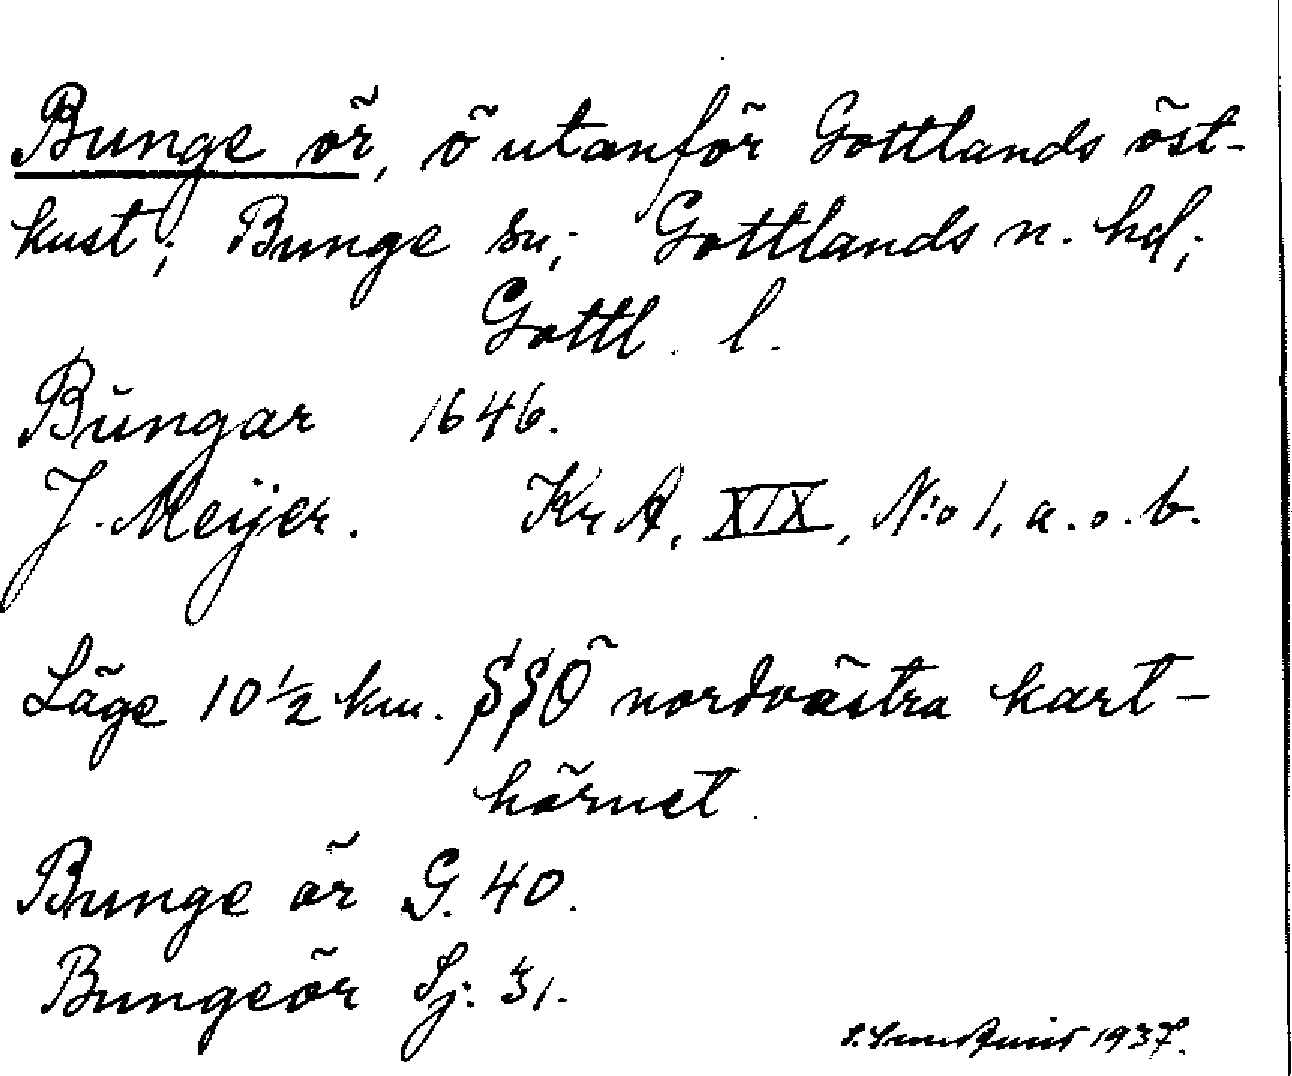 Bunge ör, ö utanför Gottlands öst-
kust; Bunge sn; Gottlands n. hd;
Gottl. l.
Bŭngar 1646.
J. Meijer. KrA, XIX, N:o 1, a. o. b.
Läge 10 1/2 km. SSÖ nordvästra kart-
hörnet.
Bunge ör G. 40.
Bungeör Sj. 31.
1937.